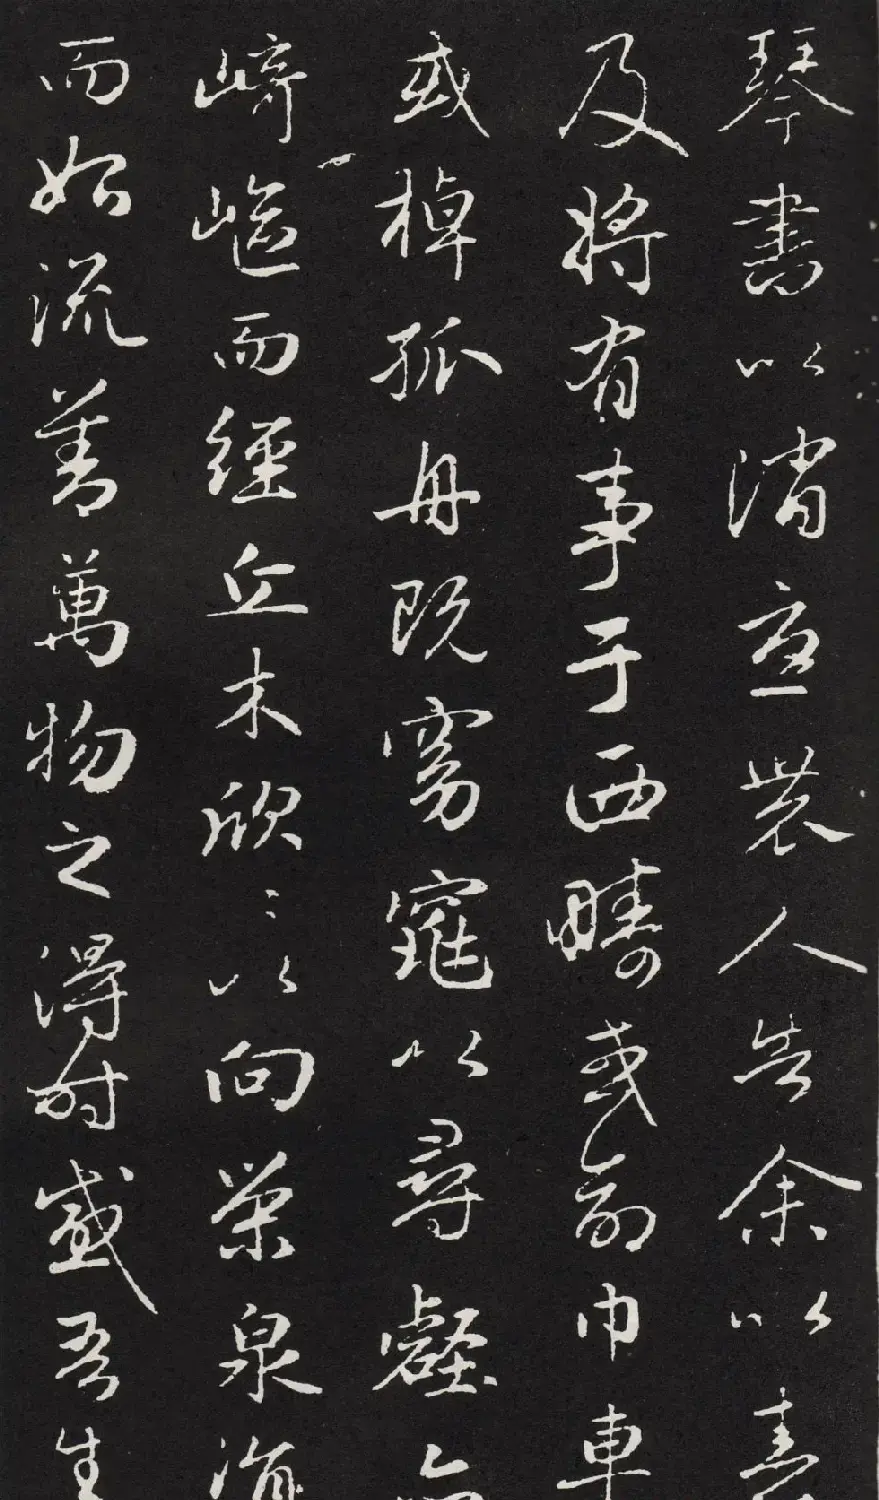 琴書以消憂農人告余以春
及將有事于西疇或命巾車
或棹孤舟既窈窕以尋壑亦
崎嶇而經丘木欣〻以向榮泉涓
而始流善萬物之得時感吾生